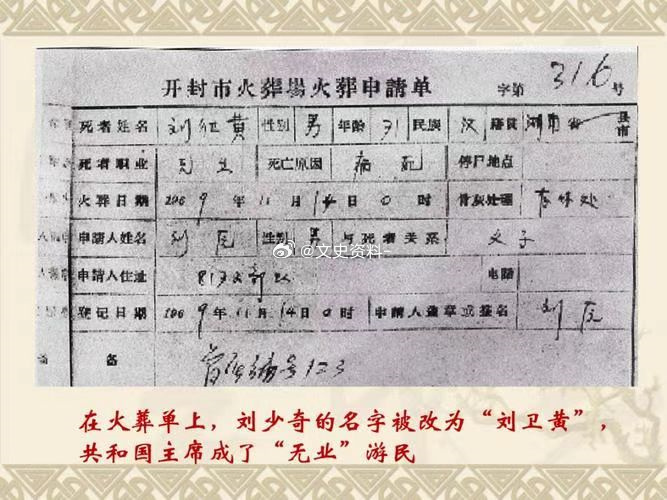 开封市火葬場火葬申請单 字第316号
死者姓名 刘卫黄 性别 男 年龄 71 民族 汉 籍貫 湖南省 县市
死者职业 无业 死亡原因 病死 停尸地点
火葬日期 1969年11月14日0时 骨灰处理 存林处
申請人姓名 刘原 性别 男 与死者关系 父子
申請人住址 8172部队 电話
登記日期 1969年11月14日0时 申請人盖章或签名 刘原
备 骨灰编号123
@文史资料-
在火葬单上，刘少奇的名字被改为“刘卫黄”，
共和国主席成了“无业”游民